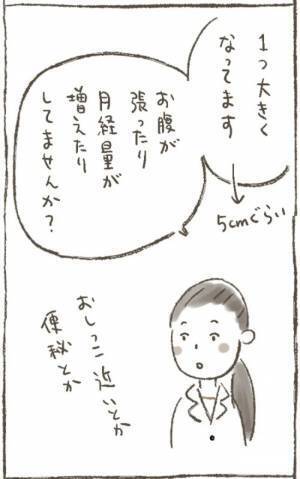 1つ大きく
なってます
5cmぐらい
お腹が
張ったり
月経量が
増えたり
してませんか？
おしっこ近いとか
便秘とか